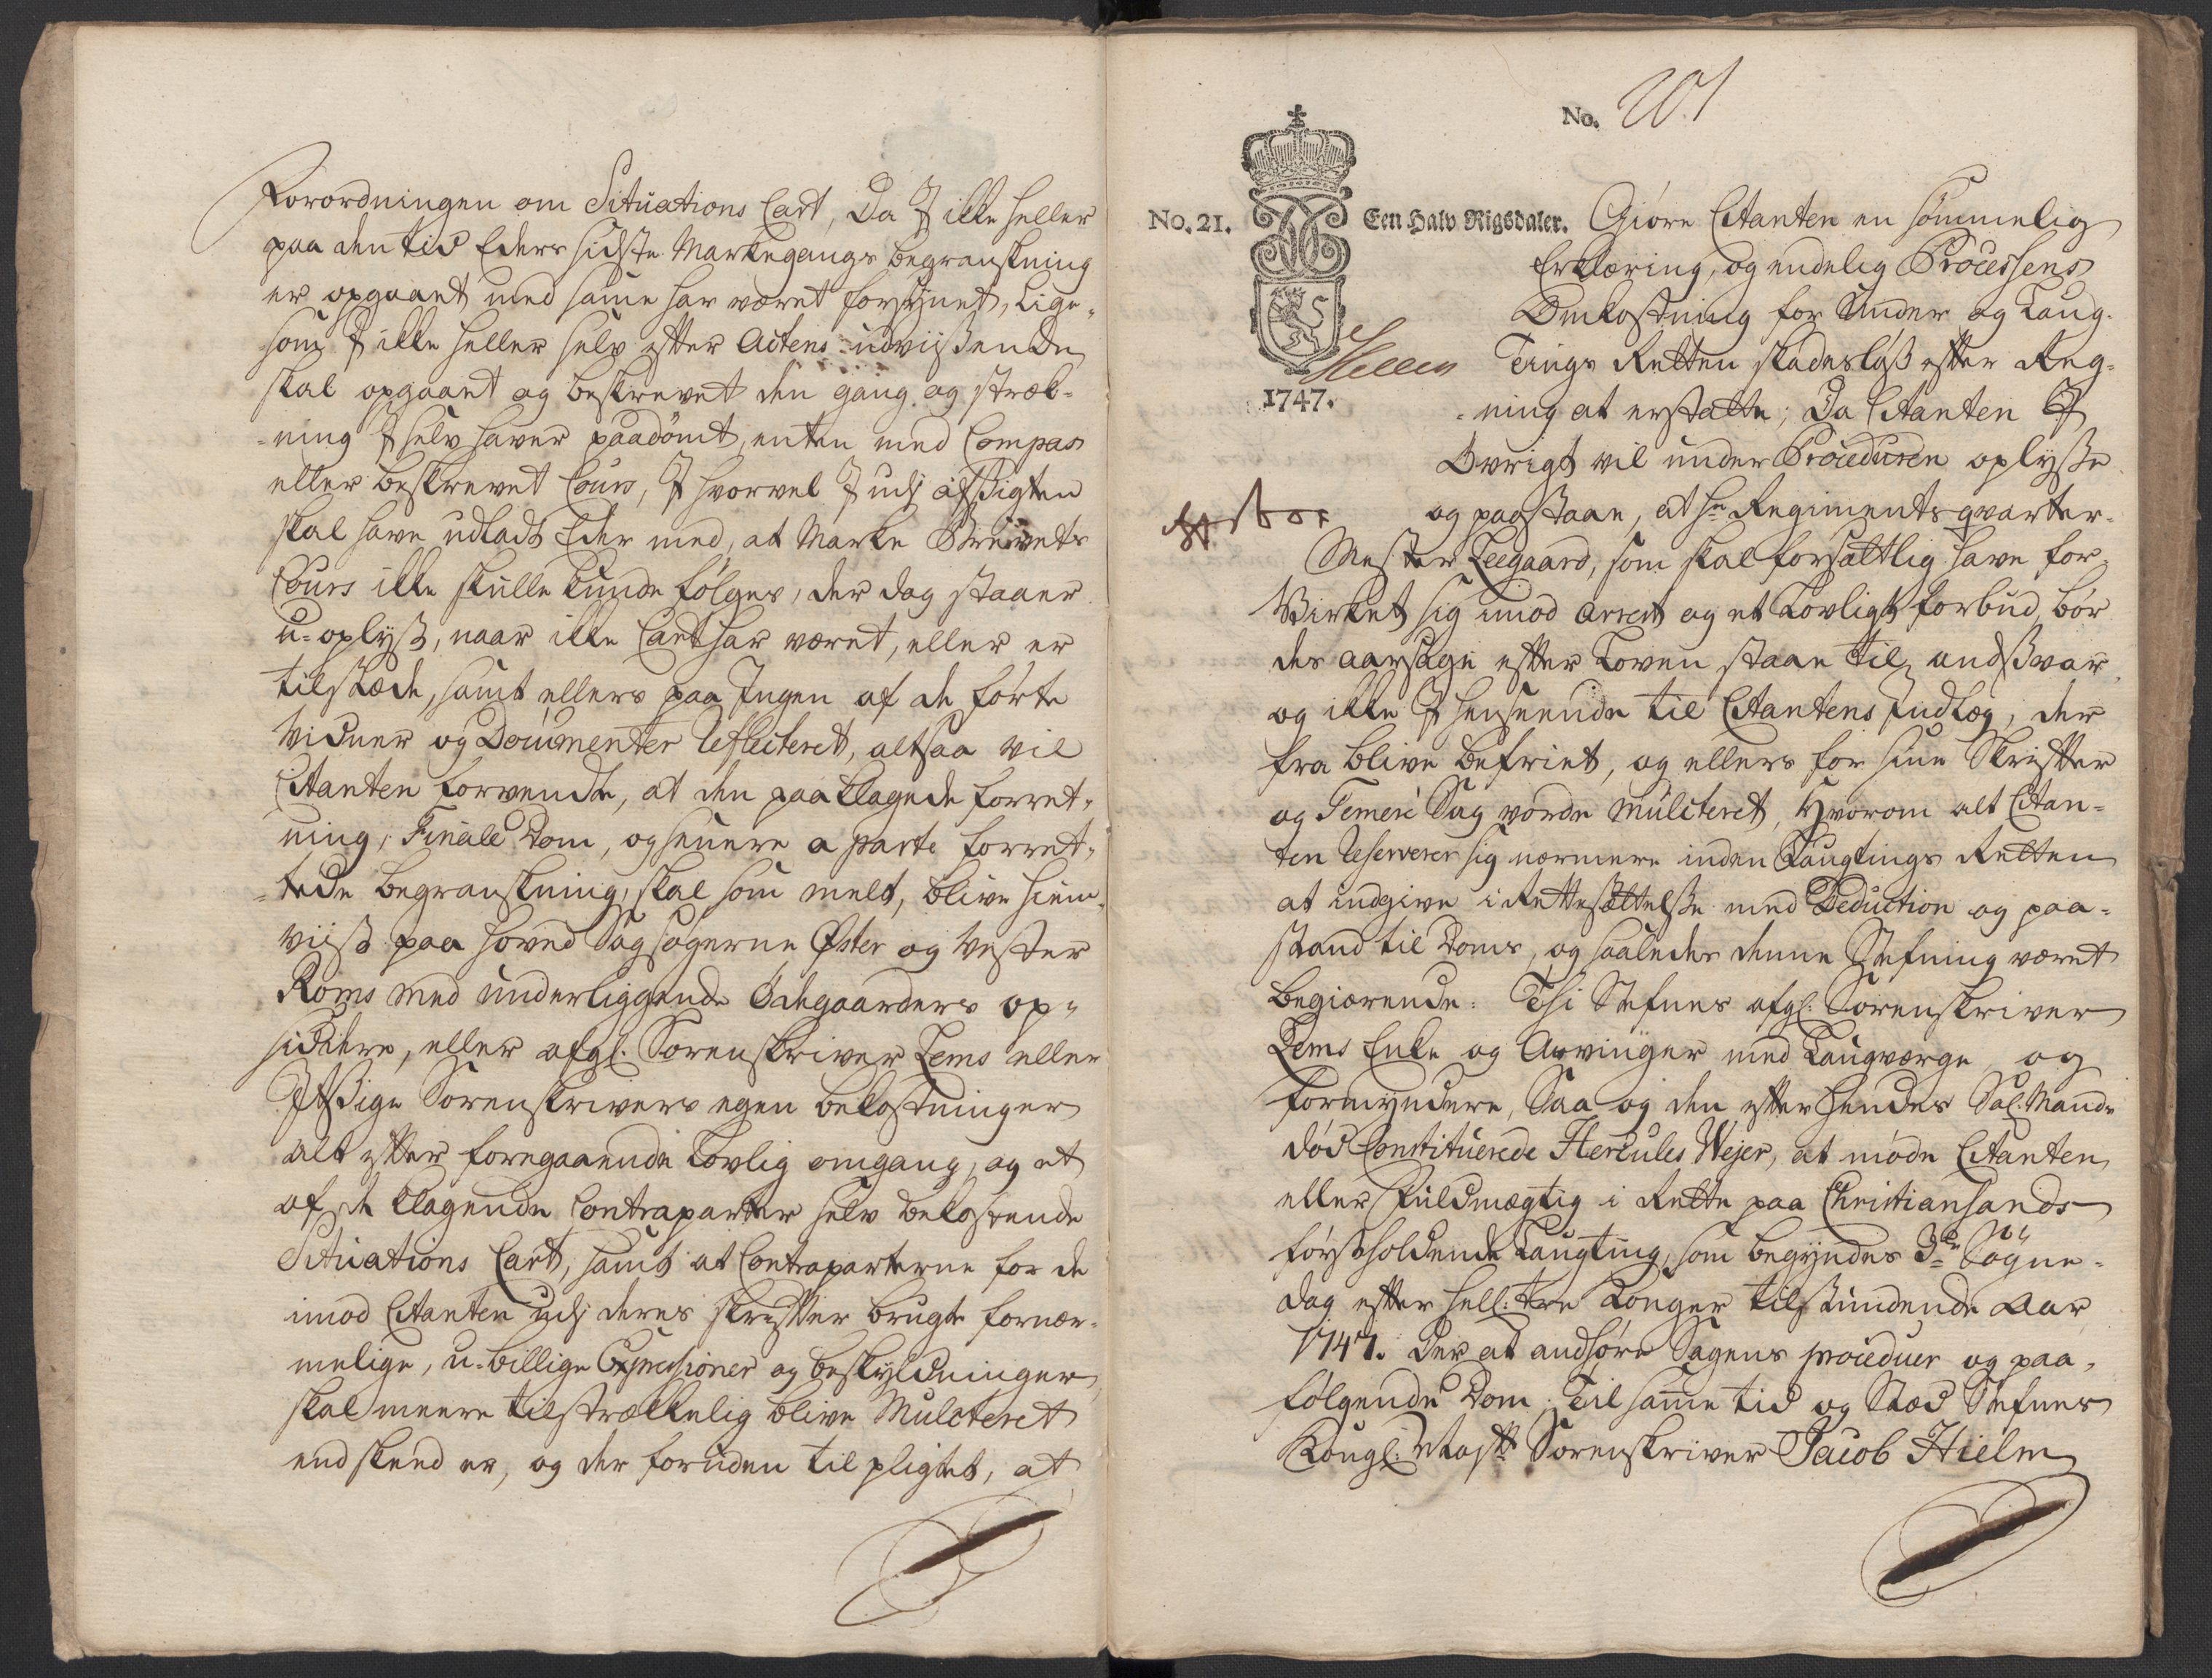 Forordningen om Situations Cart, Da I ikke heller
paa den tid Eders sidste Markegangs begranskning
er opgaaet med same har været forsÿnet, Lige-
som I ikke heller selv efter Actens udviißende
skal opgaaet og beskrevet den gang og stræk-
-ning I selv haver paadömt, enten med Compas
eller beskrevet Cours, I hvorvel I udj afsigten
skal have udladt Eder med, at Marke Brevets
Cours ikke skulle kunde fölges, der dog staaer
u-oplyst, naar ikke Cart har været, eller er
tilstæde, samt ellers paa Ingen af de förte
Vidner og Documenter Reflecteret, altsaa vil
Citanten forvendte, at den paaklagede forret-
ning, Finale Dom, og senere a parte forret-
-tede begranskning, skal som melt, blive hiem-
viist paa hoved Sagsögerne Øster og Vester
Roms med underliggende Ödegaarders op-
siddere, eller afg: Sorenskriver Lems eller
Itzige Sorenskrivers egen bekostninger
alt efter foregaaende Lovlig omgang, og et
af de klagende Contraparter selv bekostende
Situations Cart, samt at Contraparterne for de
imod Citanten udj deres skrifter brugte fornær-
melige, u-billige Expressioner og beskyldninger
skal meere tilstrækkelig blive Mulcteret
end skeed er, og der foruden tilpligtet, at
No. 201
No. 21. Een Halv Rigsdaler. Giöre Citanten en sömmelig
Erklæring, og endelig Processens
Omkostning for Under og Laug-
Tings Retten skadeslöß efter Reg-
1747. -ning at erstatte; Da Citanten I
Övrigt vil under Proceduren oplyße
og paastaae, at hr Regimentsqvarter-
Mester Leegaard, som skal forsættlig have for-
Virket sig imod Arrest og et Lovligt forbud, bör
des aarsage efter Loven staae til andßvar,
og ikke I henseende til Citantens Indlæg, der
fra blive befriet, og ellers for sine Skrifter
og Temere Sag vorde Mulcteret, Hvorom alt Citan-
ten Reserverer sig nærmere inden Laugtings Retten
at indgive i Rettesættelße med Deduction og paa-
stand til Doms, og saaledes denne Stefning været
begiærende. Thi Stefnes afg: Sorenskriver
Lems Enke og Arvinger med Laugværge og
formyndere, Saa og den efter hendes Sal: Mands
död Constituerede Hercules Wejer, at möde Citanten
eller Fuldmægtig i Rette paa Christiansands
förstholdende Laugting, som begyndes 3de Sögne-
dag efter hell: tre Konger tilstundende Aar
1747. Der at andhöre Sagens proceduer og paa-
fölgende Dom; Til same tid og Sted Stefnes
Kongl: Maytts Sorenskriver Jacob Hielm